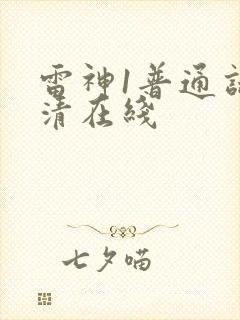 雷神1普通
清在綫
七夕喵